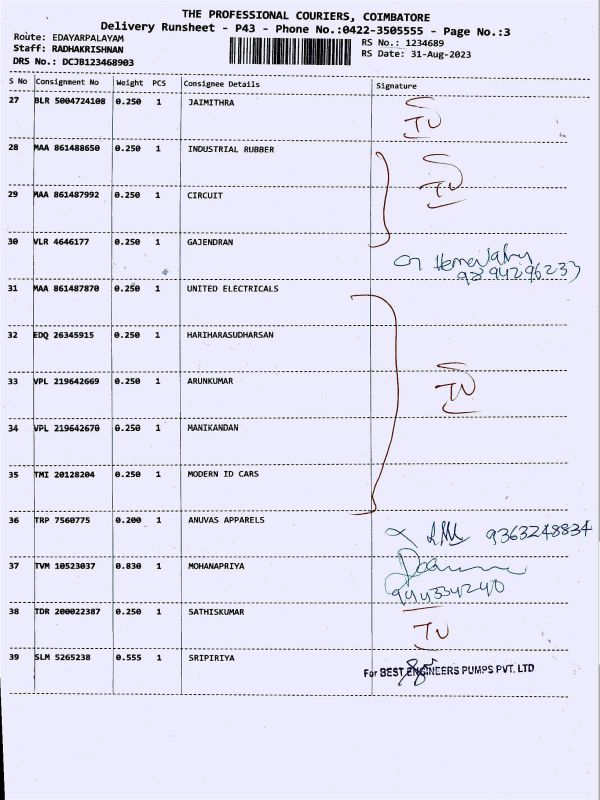 THE PROFESSIONAL COURIERS, COIMBATORE
Delivery Runsheet - P43 - Phone No.:0422-3505555 - Page No.:3
Route: EDAYARPALAYAM
Staff: RADHAKRISHNAN
DRS No.: DCJB123468903
RS No.: 1234689
RS Date: 31-Aug-2023
S No Consignment No Weight PCS Consignee Details Signature
27 BLR 5004724108 0.250 1 JAIMITHRA
28 MAA 861488650 0.250 1 INDUSTRIAL RUBBER
29 MAA 861487992 0.250 1 CIRCUIT
30 VLR 4646177 0.250 1 GAJENDRAN
9894296233
31 MAA 861487870 0.250 1 UNITED ELECTRICALS
32 EDQ 26345915 0.250 1 HARIHARASUDHARSAN
33 VPL 219642669 0.250 1 ARUNKUMAR
34 VPL 219642670 0.250 1 MANIKANDAN
35 TMI 20128204 0.250 1 MODERN ID CARS
36 TRP 7560775 0.200 1 ANUVAS APPARELS 9363248834
37 TVM 10523037 0.830 1 MOHANAPRIYA
38 TDR 200022387 0.250 1 SATHISKUMAR
39 SLM 5265238 0.555 1 SRIPIRIYA For BEST ENGINEERS PUMPS PVT. LTD